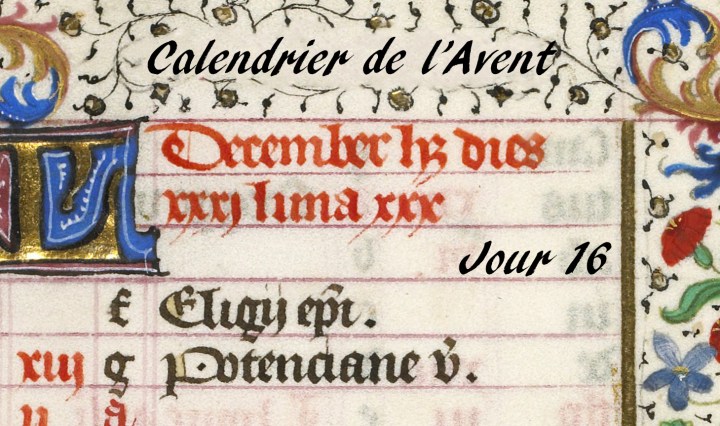 Calendrier de l'Avent
KL
December hꝫ dies
xxxi luna xxx
Jour 16
f Eligii epi.
xiii g Potenciane v.
ii A